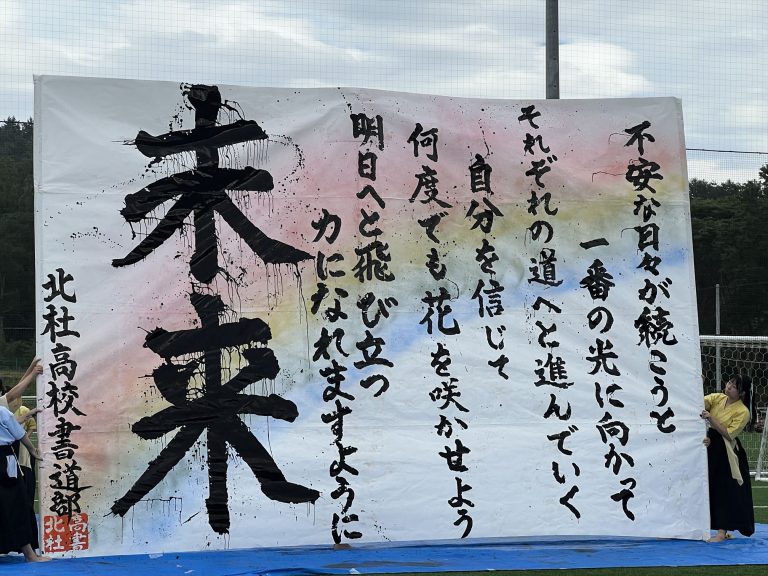 不安な日々が続こうと
一番の光に向かって
それぞれの道へと進んでいく
自分を信じて
何度でも花を咲かせよう
明日へと飛び立つ
力になれますように
未来
北杜高校書道部
高書
北杜